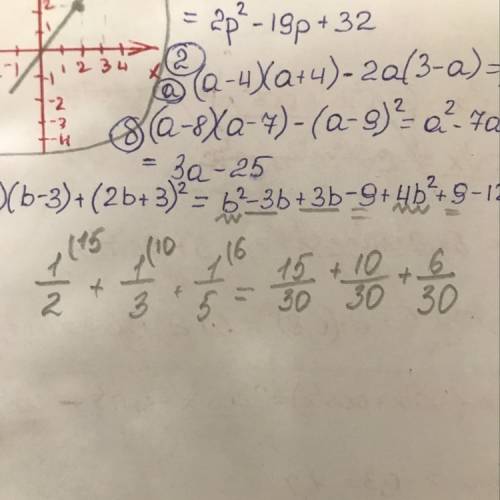 = 2p² - 19p + 32
2
-1 1 2 3 4 x
1
-2
-3
-4
②
ⓐ (a-4)(a+4) - 2a(3-a) =
⑧ (a-8)(a-7) - (a-9)² = a² - 7a
= 3a - 25
)(b-3) + (2b+3)² = b² - 3b + 3b - 9 + 4b² + 9 - 12
1/2 (15 + 1/3 (10 + 1/5 (6 = 15/30 + 10/30 + 6/30